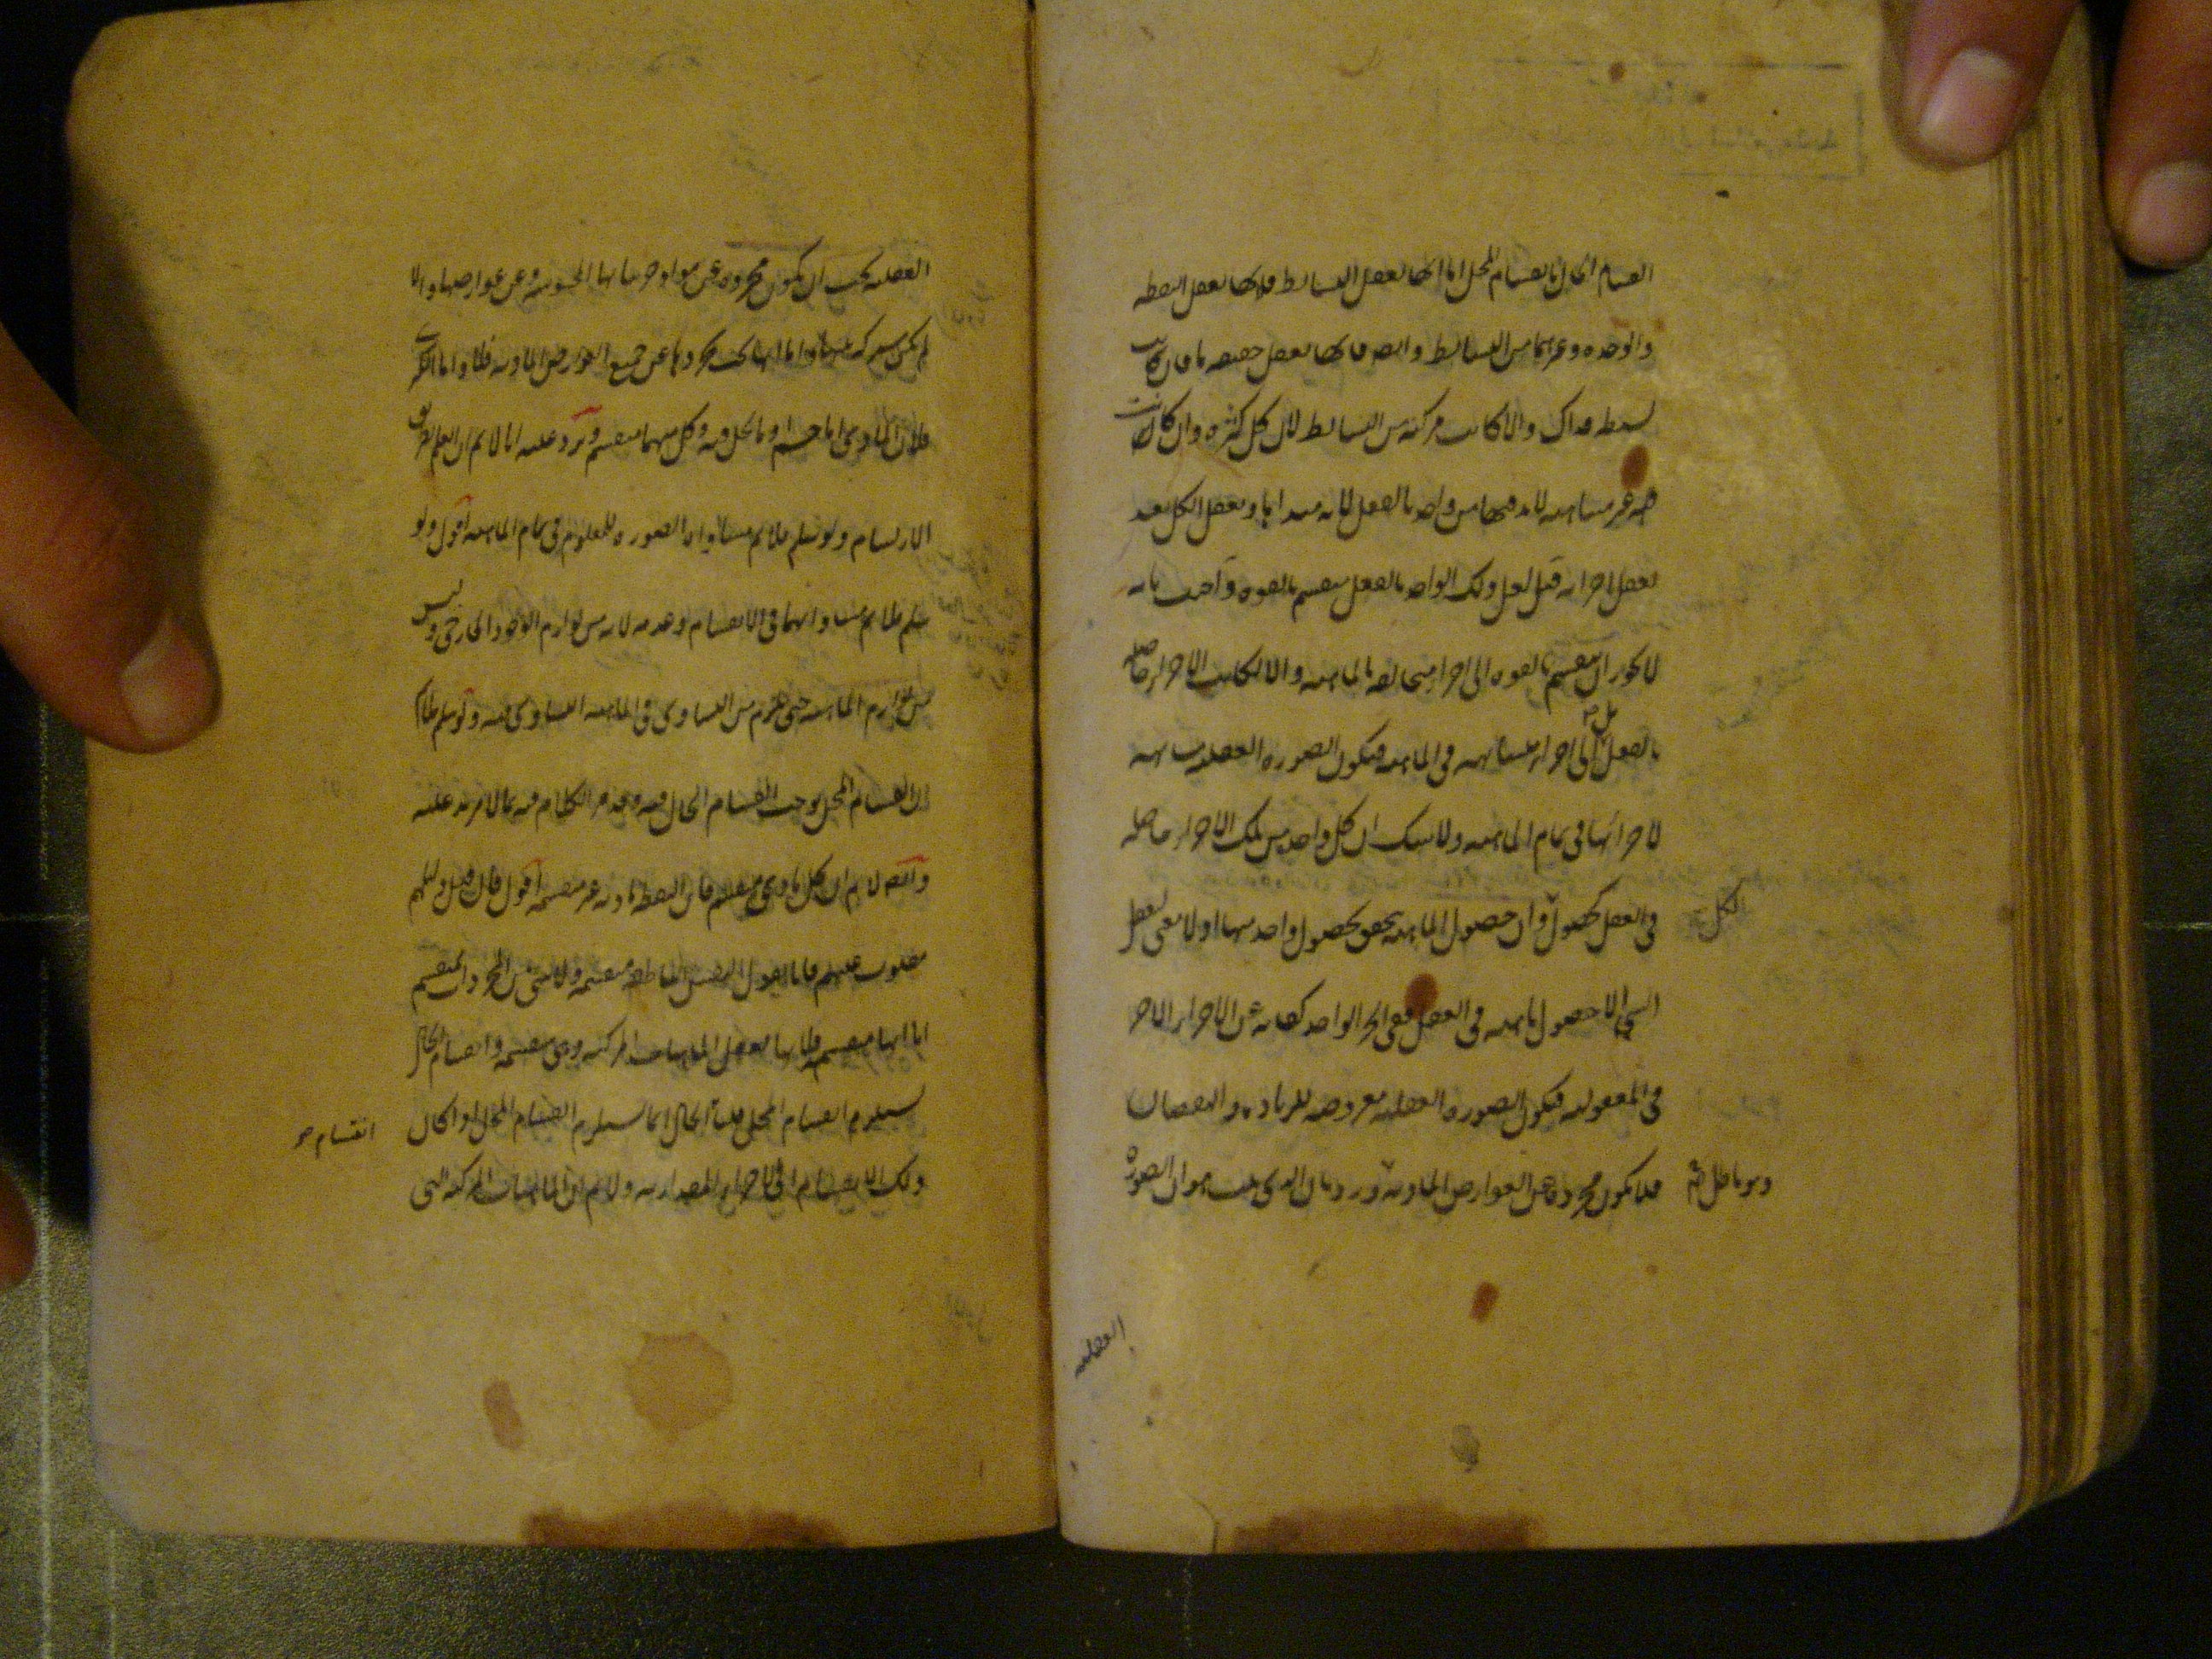 انقسام الحال بانقسام المحل اما انها تعقل البسائط فلانها تعقل النقطة
والوحدة وغيرهما من البسائط وايضا فانها تعقل حقيقة ما فان كانت
بسيطة فذاك والا كانت مركبة من البسائط لان كل كثرة وان كانت
غير متناهية لا بد فيها من واحد بالفعل لانه مبداها وتعقل الكل بعد
تعقل اجزائه قيل لعل ذلك الواحد بالفعل منقسم بالقوة واجيب بانه
لا يجوز ان ينقسم بالقوة الى اجزاء متخالفة بالماهية والا لكانت الاجزاء حاصلة
بالفعل بل الى اجزاء متشابهة في الماهية فتكون الصورة العقلية مشابهة
لاجزائها في تمام الماهية ولا شك ان كل واحد من تلك الاجزاء حاصلة
في العقل كحصول وان حصول الماهية يتحقق بحصول واحد منها اولا معنى لتعقل
الكل
الشيء الا حصول ماهيته في العقل ففي الجزء الواحد كفاية عن الاجزاء الاخر
في المعقولية فتكون الصورة العقلية معروضة للزيادة والنقصان
فلا تكون مجردة عن العوارض المادية ورد بان الذي يثبت هو ان الصورة
العقلية
العقلية يجب ان تكون مجردة عن مواد جزئياتها المحسوسة وعن عوارضها والا
لم تكن مشتركة بينها واما انها يجب تجردها عن جميع العوارض المادية فلا واما الكبرى
فلان المادي اما جسم او ما يحل فيه وكل منهما منقسم ويرد عليه انا لا نم ان العلم بطريق
الارتسام ولو سلم فلا نم مساواة الصورة للمعلوم في تمام الماهية اقول ولو
سلم فلا نم مساواتهما في الانقسام وعدمه لانه من لوازم الوجود الخارجي وليس
من لوازم الماهية حتى يلزم من التساوي في الماهية التساوي فيه ولو سلم فلا نم
ان انقسام المحل يوجب انقسام الحال فيه وقد مر الكلام فيه بما لا مزيد عليه
وايضا لا نم ان كل مادي منقسم فان النقطة مادية غير منقسمة اقول فان قيل دليلهم
مقلوب عليهم فانا نقول النفس الناطقة منقسمة ولا شيء من المجرد بمنقسم
اما انها منقسمة فلانها تعقل الماهيات المركبة وهي منقسمة وانقسام الحال
يستلزم انقسام المحل قلنا الحال انما يستلزم انقسام المحل لو كان
انقسام صح
ذلك الانقسام الى الاجزاء المقدارية ولا نم ان الماهيات المركبة التي